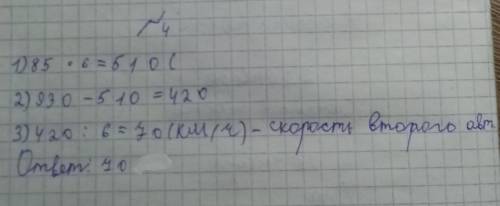 №4
1) 85 · 6 = 510 (
2) 930 - 510 = 420
3) 420 : 6 = 70 (км/ч) - скорость второго авт
Ответ: 70